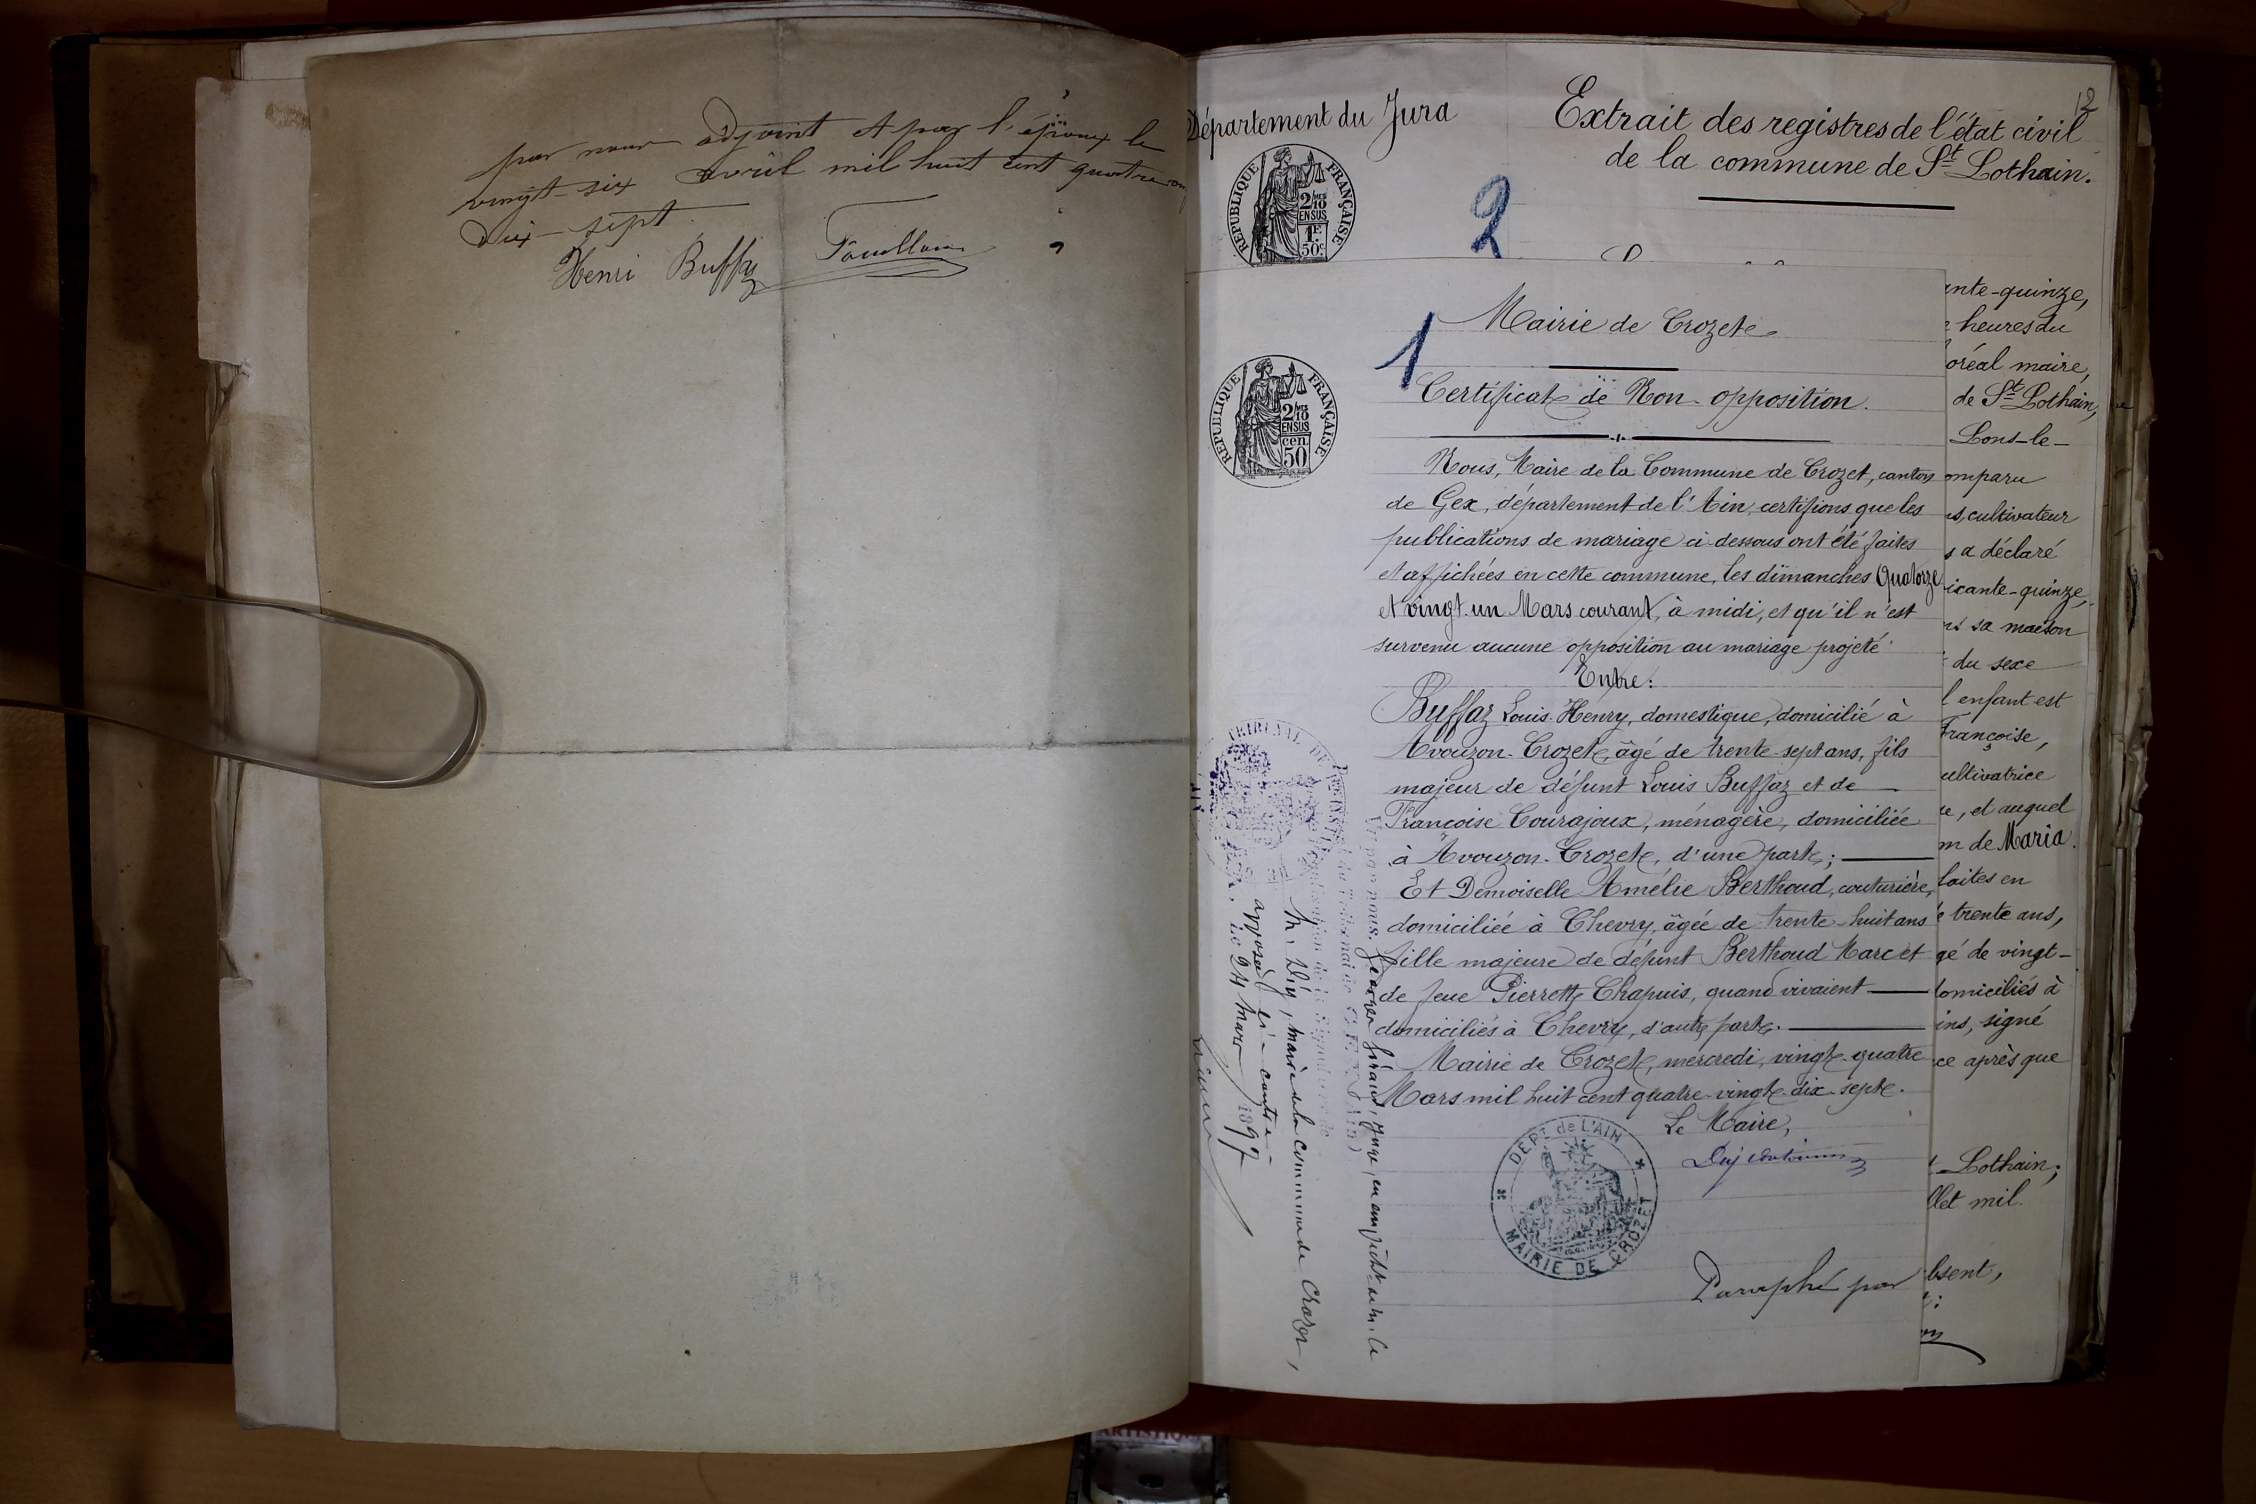 par nous adjoint et par l'époux le
vingt-six avril mil huit cent quatre
dix-sept
Henri Buffaz
12
Département du Jura
Extrait des registres de l'état civil
de la commune de St Lothain.
RÉPUBLIQUE FRANÇAISE
2/10 EN SUS
1F 50c
2
1
Mairie de Crozet
RÉPUBLIQUE FRANÇAISE
2/10 EN SUS
cen. 50
Certificat de Non-opposition.
Nous, Maire de la Commune de Crozet, canton
de Gex, département de l'Ain, certifions que les
publications de mariage ci-dessous ont été faites
et affichées en cette commune, les dimanches Quatorze
et vingt-un Mars courant, à midi, et qu'il n'est
survenu aucune opposition au mariage projeté
Entre:
Buffaz Louis-Henry, domestique, domicilié à
Avouzon-Crozet, âgé de trente-sept ans, fils
majeur de défunt Louis Buffaz et de
Françoise Courajoux, ménagère, domiciliée
à Avouzon-Crozet, d'une part;
Et Demoiselle Amélie Berthoud, couturière,
domiciliée à Chevry, âgée de trente-huit ans
fille majeure de défunt Berthoud Marc et
de feue Pierrette Chapuis, quand vivaient
domiciliés à Chevry, d'autre part.
Mairie de Crozet, mercredi, vingt-quatre
Mars mil huit cent quatre-vingt-dix-sept.
Le Maire,
DEPT de L'AIN
MAIRIE DE CROZET
Paraphé par
ante-quinze,
heures du
oréal maire,
de St Lothain,
Lons-le-
omparu
ns, cultivateur
s a déclaré
ixante-quinze,
ns sa maison
du sexe
l'enfant est
Françoise,
ultivatrice
et auquel
m de Maria.
faites en
trente ans,
gé de vingt-
domiciliés à
ins, signé
ce après que
Lothain;
llet mil.
bsent,
TRIBUNAL DE
Vu par nous, juge, en empêcht de M. le
M. Déy, maire de la commune de Crozet,
apposée ci-contre
le 24 Mars 1897